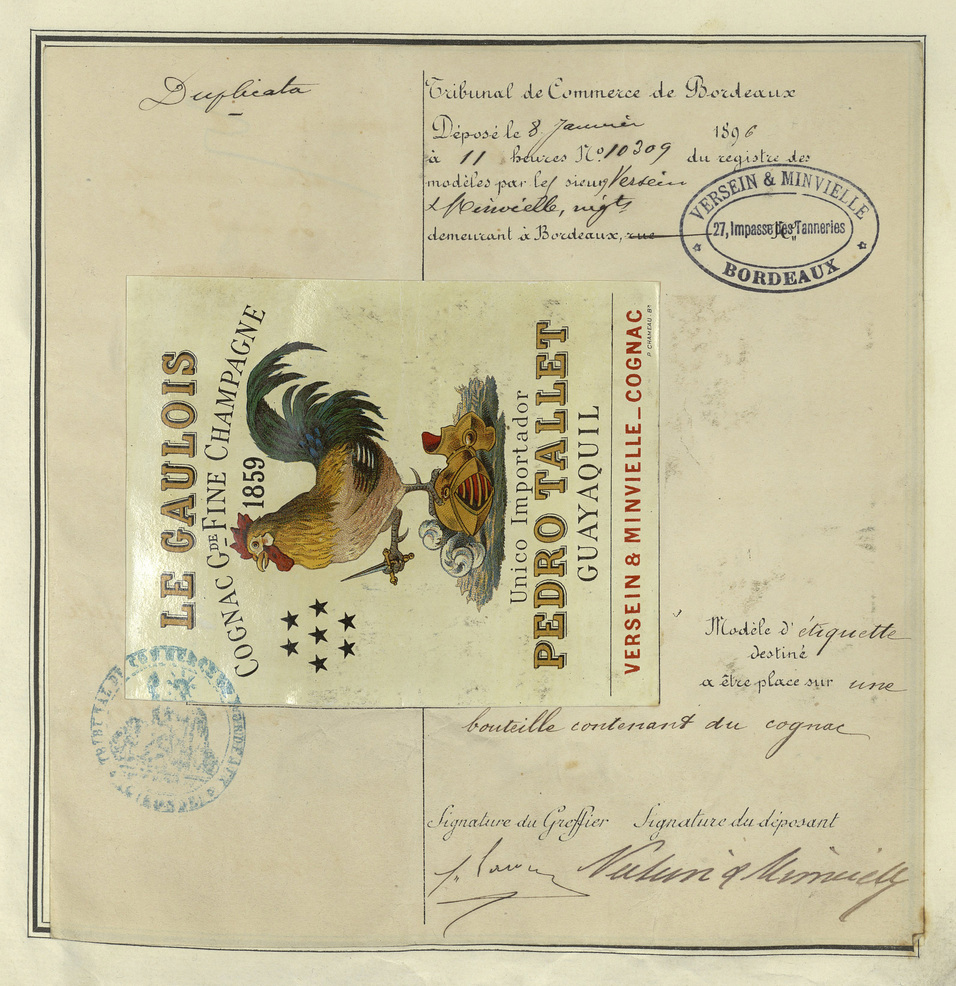 Duplicata
Tribunal de Commerce de Bordeaux
Déposé le 8 Janvier 1896
à 11 heures No. 10309 du registre des
modèles par les sieurs Versein
& Minvielle, négts
demeurant à Bordeaux, rue No.
VERSEIN & MINVIELLE
27, Impasse des Tanneries
BORDEAUX
LE GAULOIS
COGNAC GDE FINE CHAMPAGNE
1859
Unico Importador
PEDRO TALLET
GUAYAQUIL
VERSEIN & MINVIELLE_COGNAC
P. CHAMEAU. Bx
TRIBUNAL DE COMMERCE DE BORDEAUX
(GIRONDE)
Modèle d'étiquette
destiné
a être place sur une
bouteille contenant du cognac
Signature du Greffier Signature du déposant
Versein & Minvielle